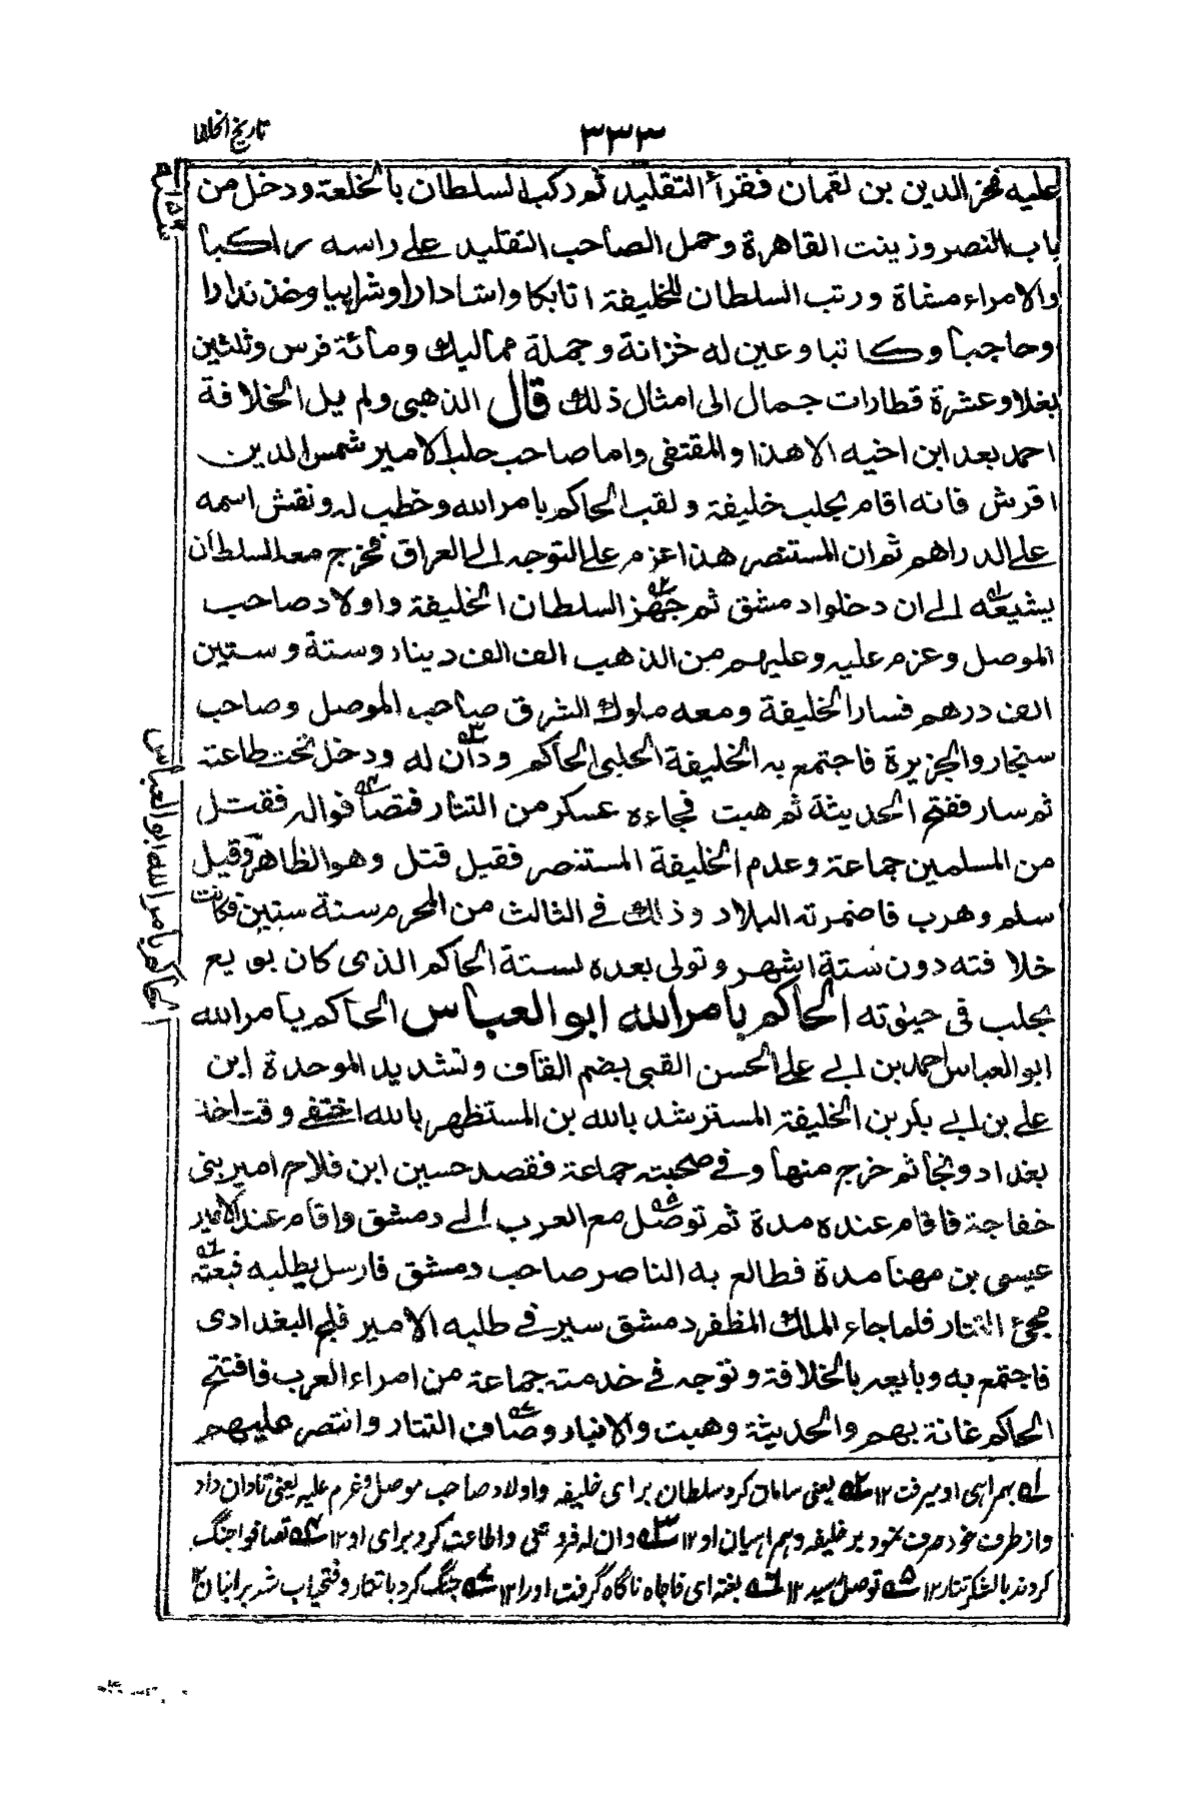 تاريخ الخلفا
٣٣٣
عليه فخر الدين بن لقمان فقرأ التقليد ثم ركب السلطان بالخلعة ودخل من
باب النصر وزينت القاهرة وحمل الصاحب التقليد على راسه راكبا
والامراء مشاة ورتب السلطان للخليفة اتابكا واستادارا وشرابيا وخزندارا
وحاجبا وكاتبا وعين له خزانة وجملة مماليك ومائة فرس وثلثين
بغلا وعشرة قطارات جمال الى امثال ذلك قال الذهبى ولم يل الخلافة
احد بعد ابن اخيه الا هذا والمقتفى واما صاحب حلب الامير شمس الدين
اقرش فانه اقام بحلب خليفة ولقب الحاكم بامر الله وخطب له ونقش اسمه
على الدراهم ثم ان المستنصر هذا عزم على التوجه الى العراق فخرج معه السلطان
يشيعه الى ان دخلوا دمشق ثم جهز السلطان الخليفة واولاد صاحب
الموصل وعزم عليه وعليهم من الذهب الف الف دينار وستة وستين
الف درهم فسار الخليفة ومعه ملوك الشرق صاحب الموصل وصاحب
سنجار والجزيرة فاجتمع به الخليفة الحلبى الحاكم ودان له ودخل تحت طاعته
ثم سار ففتح الحديثة ثم هيت فجاءه عسكر من التتار فتصافوا له فقتل
من المسلمين جماعة وعدم الخليفة المستنصر فقيل قتل وهو الظاهر وقيل
سلم وهرب فاضمرته البلاد وذلك فى الثالث من المحرم سنة ستين فكانت
خلافته دون ستة اشهر وتولى بعده بسنة الحاكم الذى كان بويع
بحلب فى حيٰوته الحاكم بامر الله ابو العباس الحاكم بامر الله
ابو العباس احمد بن ابى على الحسن القبى بضم القاف وتشديد الموحدة ابن
على بن ابى بكر بن الخليفة المسترشد بالله بن المستظهر بالله اختفى وقت اخذ
بغداد ونجا ثم خرج منها وفى صحبته جماعة فقصد حسين ابن فلاح امير بنى
خفاجة فاقام عنده مدة ثم توصل مع العرب الى دمشق واقام عند الامير
عيسى بن مهنا مدة فطالع به الناصر صاحب دمشق فارسل يطلبه فبغته
مجئ التتار فلما جاء الملك المظفر دمشق سير فى طلبه الامير قلج البغدادى
فاجتمع به وبايعه بالخلافة وتوجه فى خدمته جماعة من امراء العرب فافتتح
الحاكم غانة بهم والحديثة وهيت والانبار وصاف التتار وانتصر عليهم
الحاكم بامر الله ابو العباس
له بهمراہى او ميرفت ١٢ ٢ه يعنى سامان كرد سلطان براى خليفه واولاد صاحب موصل وغرم عليه يعنى تاوان داد
واز طرف خود صرف نمود بر خليفه وهمراهيان او ١٢ ٣ه دان له فروتنى واطاعت كرد براى او ١٢ ٤ه تصافوا جنگ
كردند با لشكر تتار ١٢ ٥ه توصل رسيد ١٢ ٦ه بغته اى فاجاه ناگاه گرفت اورا ١٢ ٧ه جنگ كرد با تتار وفتحياب شد بر ايشان ١٢